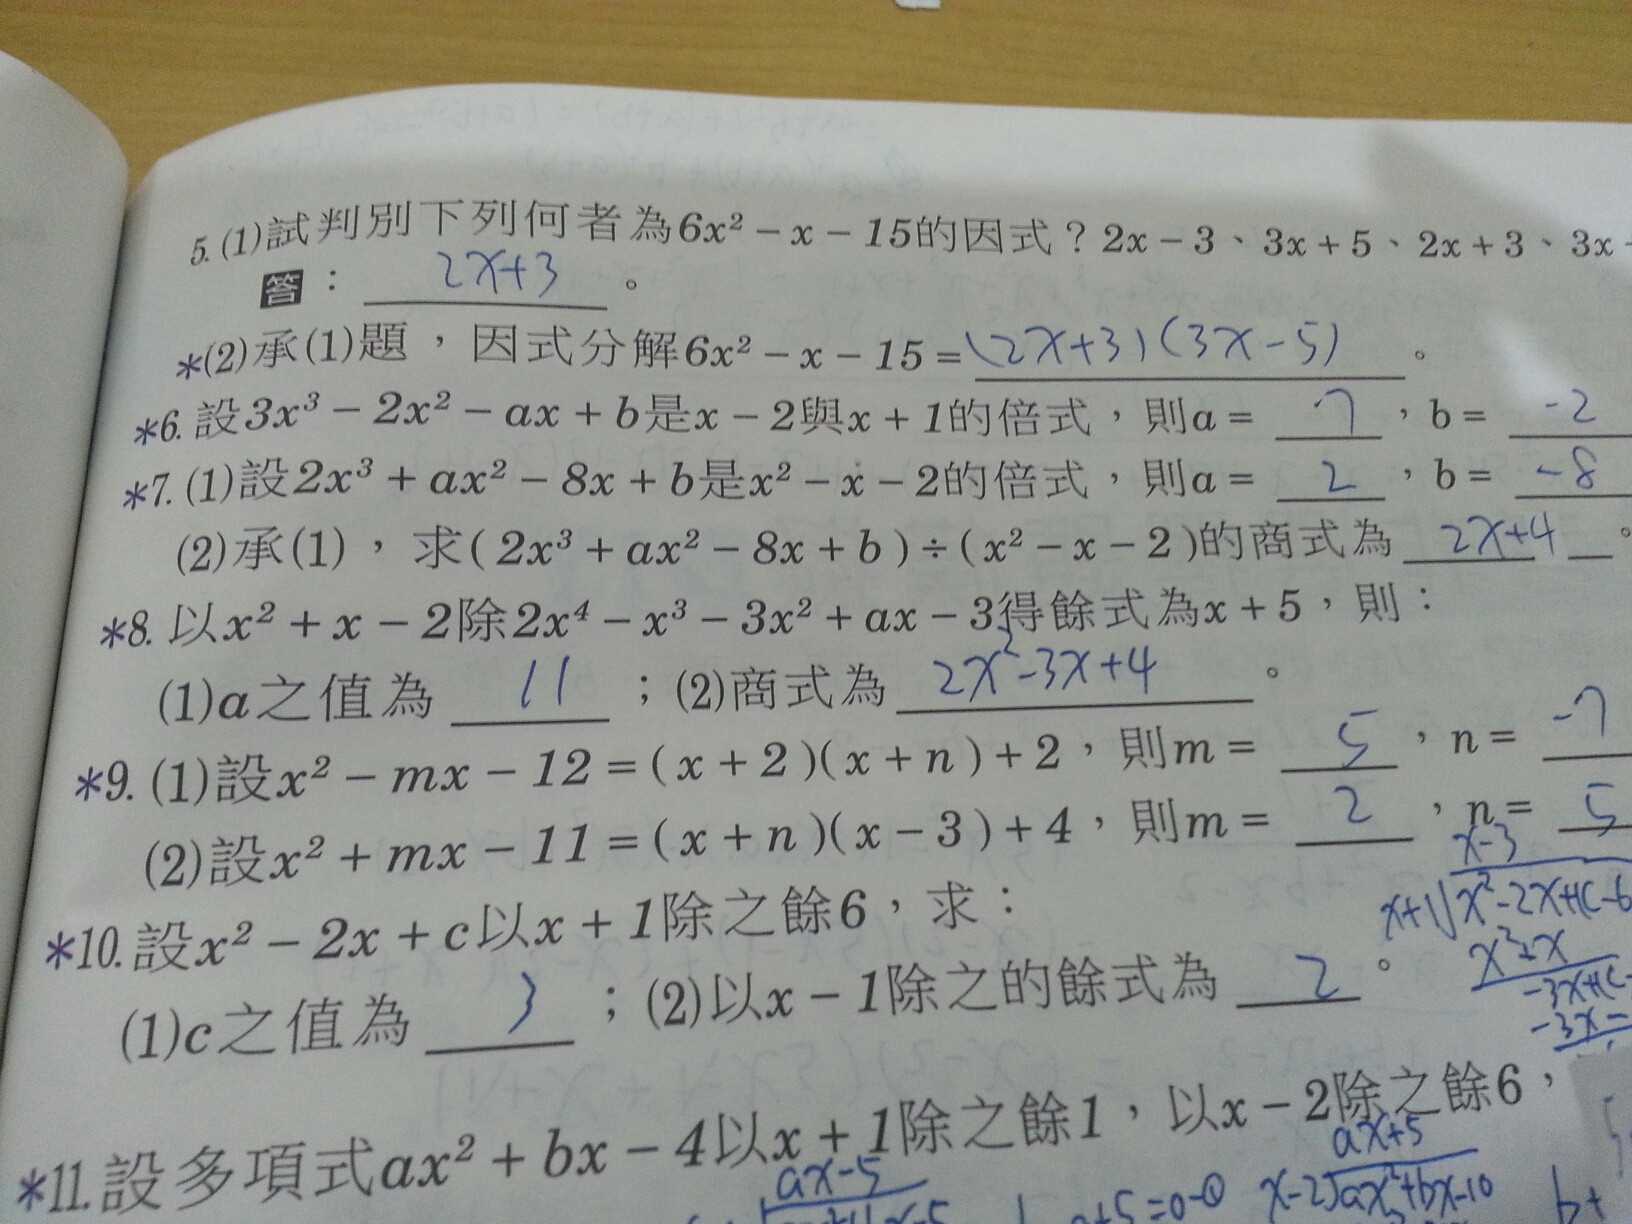 5.(1)試判別下列何者為6x²-x-15的因式？2x-3、3x+5、2x+3、3x
答：2x+3。
*(2)承(1)題，因式分解6x²-x-15=(2x+3)(3x-5)。
*6.設3x³-2x²-ax+b是x-2與x+1的倍式，則a=7，b=-2
*7.(1)設2x³+ax²-8x+b是x²-x-2的倍式，則a=2，b=-8
(2)承(1)，求(2x³+ax²-8x+b)÷(x²-x-2)的商式為2x+4。
*8.以x²+x-2除2x⁴-x³-3x²+ax-3得餘式為x+5，則：
(1)a之值為11；(2)商式為2x²-3x+4。
*9.(1)設x²-mx-12=(x+2)(x+n)+2，則m=5，n=-7
(2)設x²+mx-11=(x+n)(x-3)+4，則m=2，n=5
x-3
x+1 x²-2x+c-6
*10.設x²-2x+c以x+1除之餘6，求：
x²+x
-3x+c-
(1)c之值為3；(2)以x-1除之的餘式為2。
-3x-
*11.設多項式ax²+bx-4以x+1除之餘1，以x-2除之餘6，
ax-5
+5=0-①
ax+5
x-2 ax²+bx-10
b+